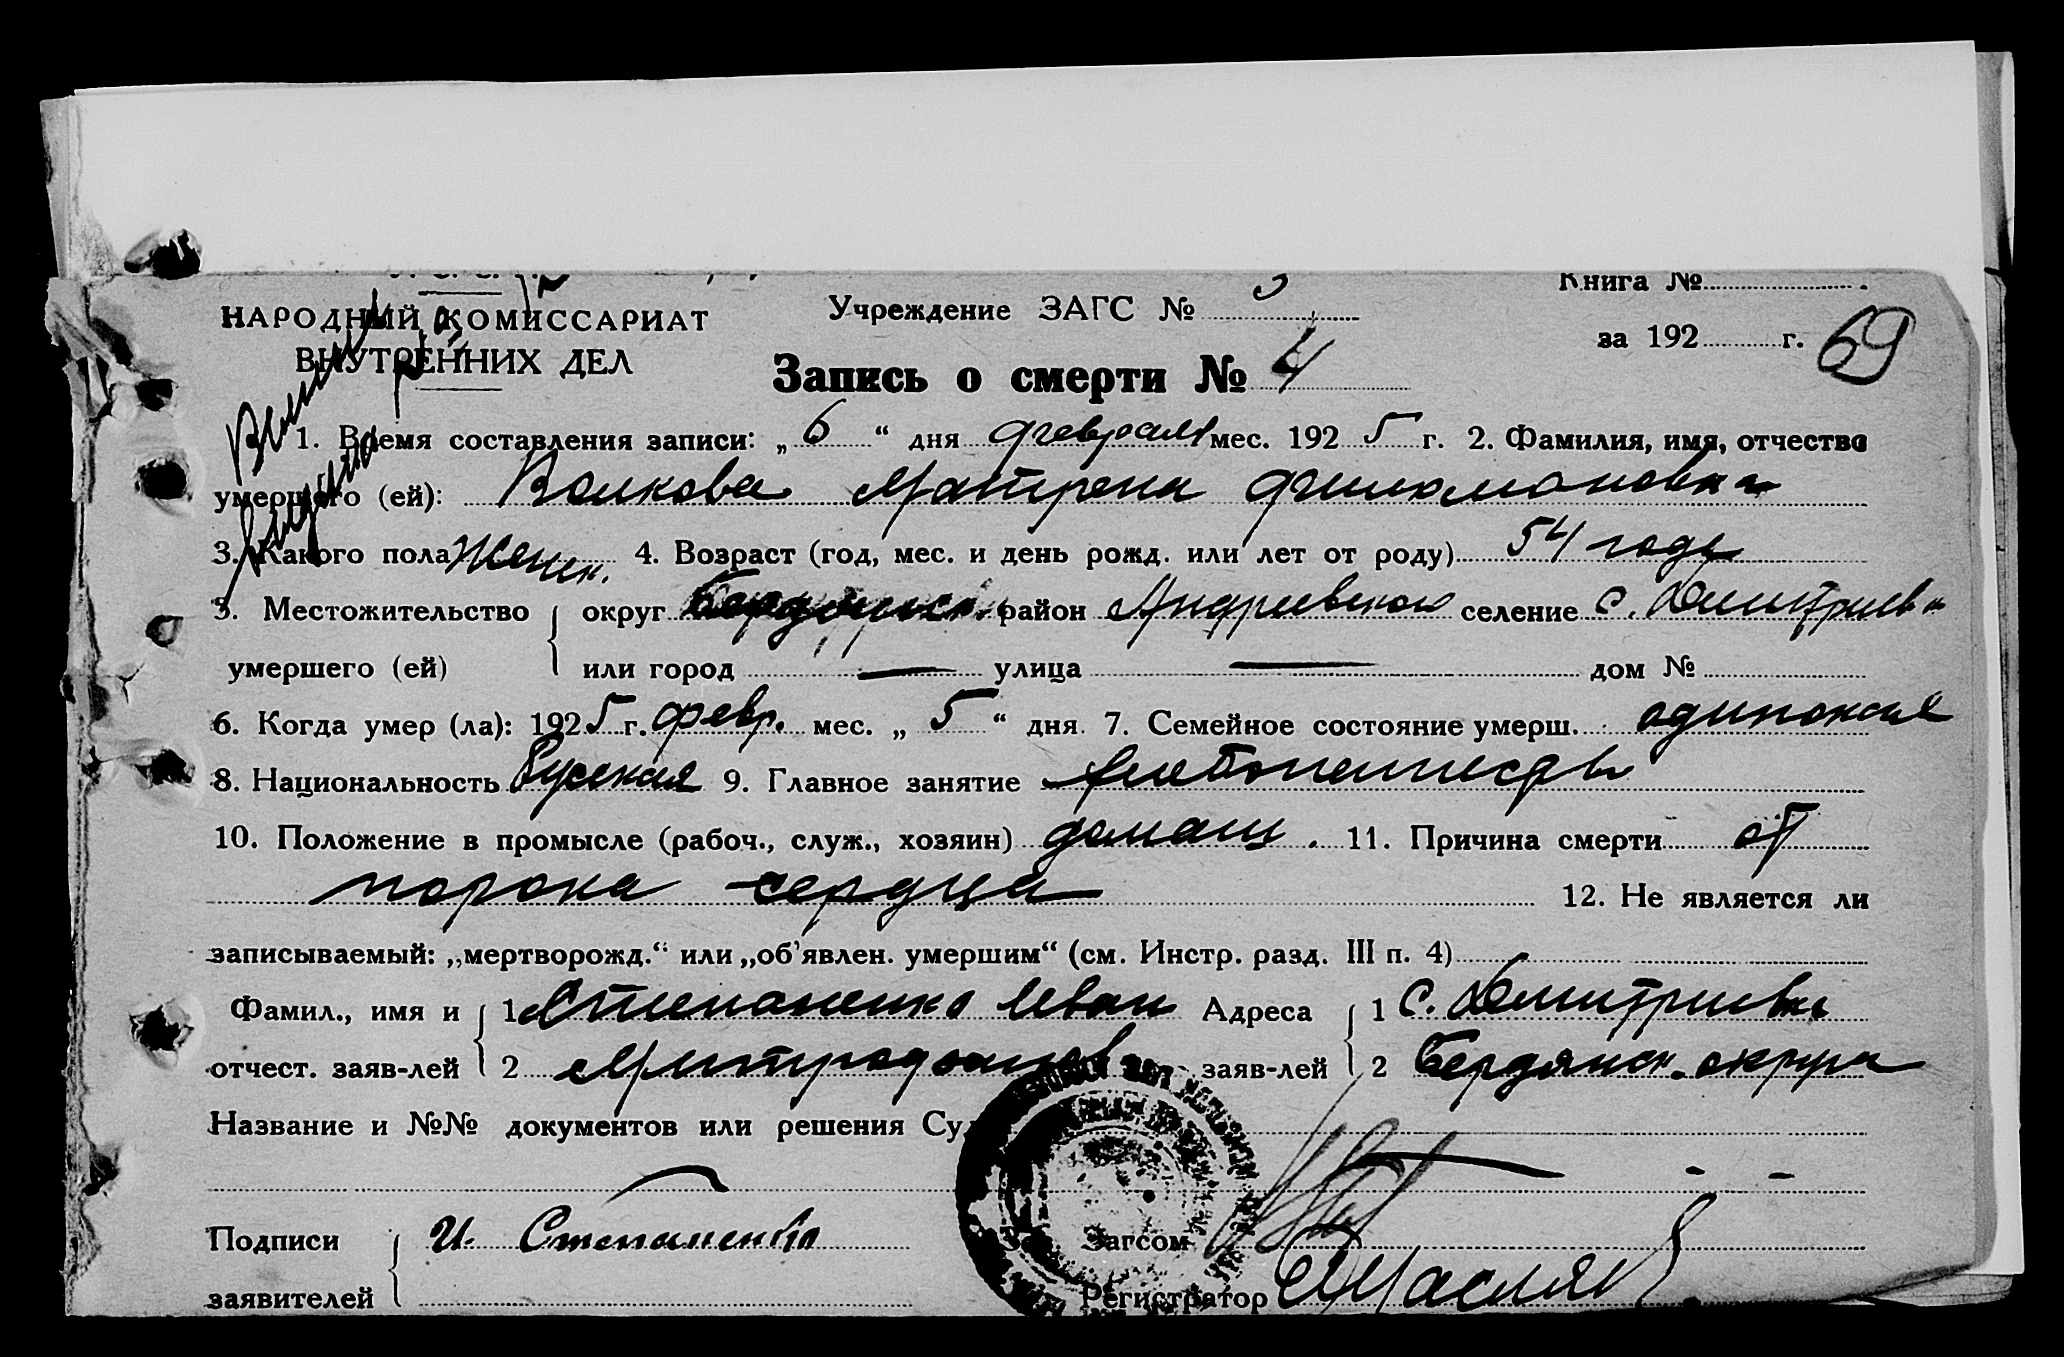 Книга №
НАРОДНЫЙ КОМИССАРИАТ
ВНУТРЕННИХ ДЕЛ
Учреждение ЗАГС № 3
за 192 г. 69
Запись о смерти № 4
Выписка
выдана
1. Время составления записи: „ 6 “ дня февраля мес. 192 5 г. 2. Фамилия, имя, отчество
умершого (ей): Волкова Матрена Филимоновна
3. Какого пола Женск. 4. Возраст (год, мес. и день рожд. или лет от роду) 54 года
5. Местожительство округ Бердянск. район Андреевского селение с. Дмитриевка
умершего (ей) или город — улица — дом №
6. Когда умер (ла): 192 5 г. февр. мес. „ 5 “ дня. 7. Семейное состояние умерш. одинокая
8. Национальность Русская 9. Главное занятие хлебопашество
10. Положение в промысле (рабоч., служ., хозяин) домаш. 11. Причина смерти от
порока сердца 12. Не является ли
записываемый: „мертворожд.“ или „об'явлен. умершим“ (см. Инстр. разд. III п. 4)
Фамил., имя и 1 Степаненко Иван Адреса 1 с. Дмитриевка
отчест. заяв-лей 2 заяв-лей 2 Бердянск. округа
Название и №№ документов или решения Суд
Подписи И. Степаненко Загсом
заявителей Регистратор